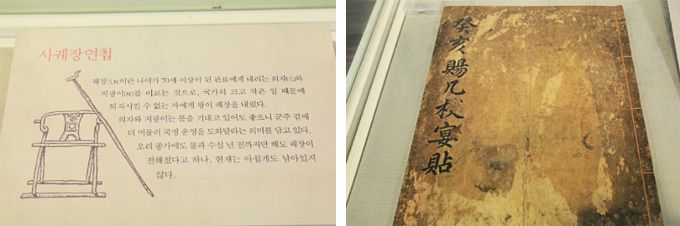 사궤장연첩
궤장(几杖)이란 나이가 70세 이상이 된 관료에게 내리는 의자(几)와
지팡이(杖)를 이르는 것으로, 국가의 크고 작은 일 때문에
퇴직시킬 수 없는 자에게 왕이 궤장을 내렸다.
의자와 지팡이는 몸을 기대고 있어도 좋으니 군주 곁에
더 머물러 국정 운영을 도와달라는 의미를 담고 있다.
오리 종가에도 불과 수십 년 전까지만 해도 궤장이
전해졌다고 하나, 현재는 아쉽게도 남아있지
않다.
癸亥賜几杖宴貼